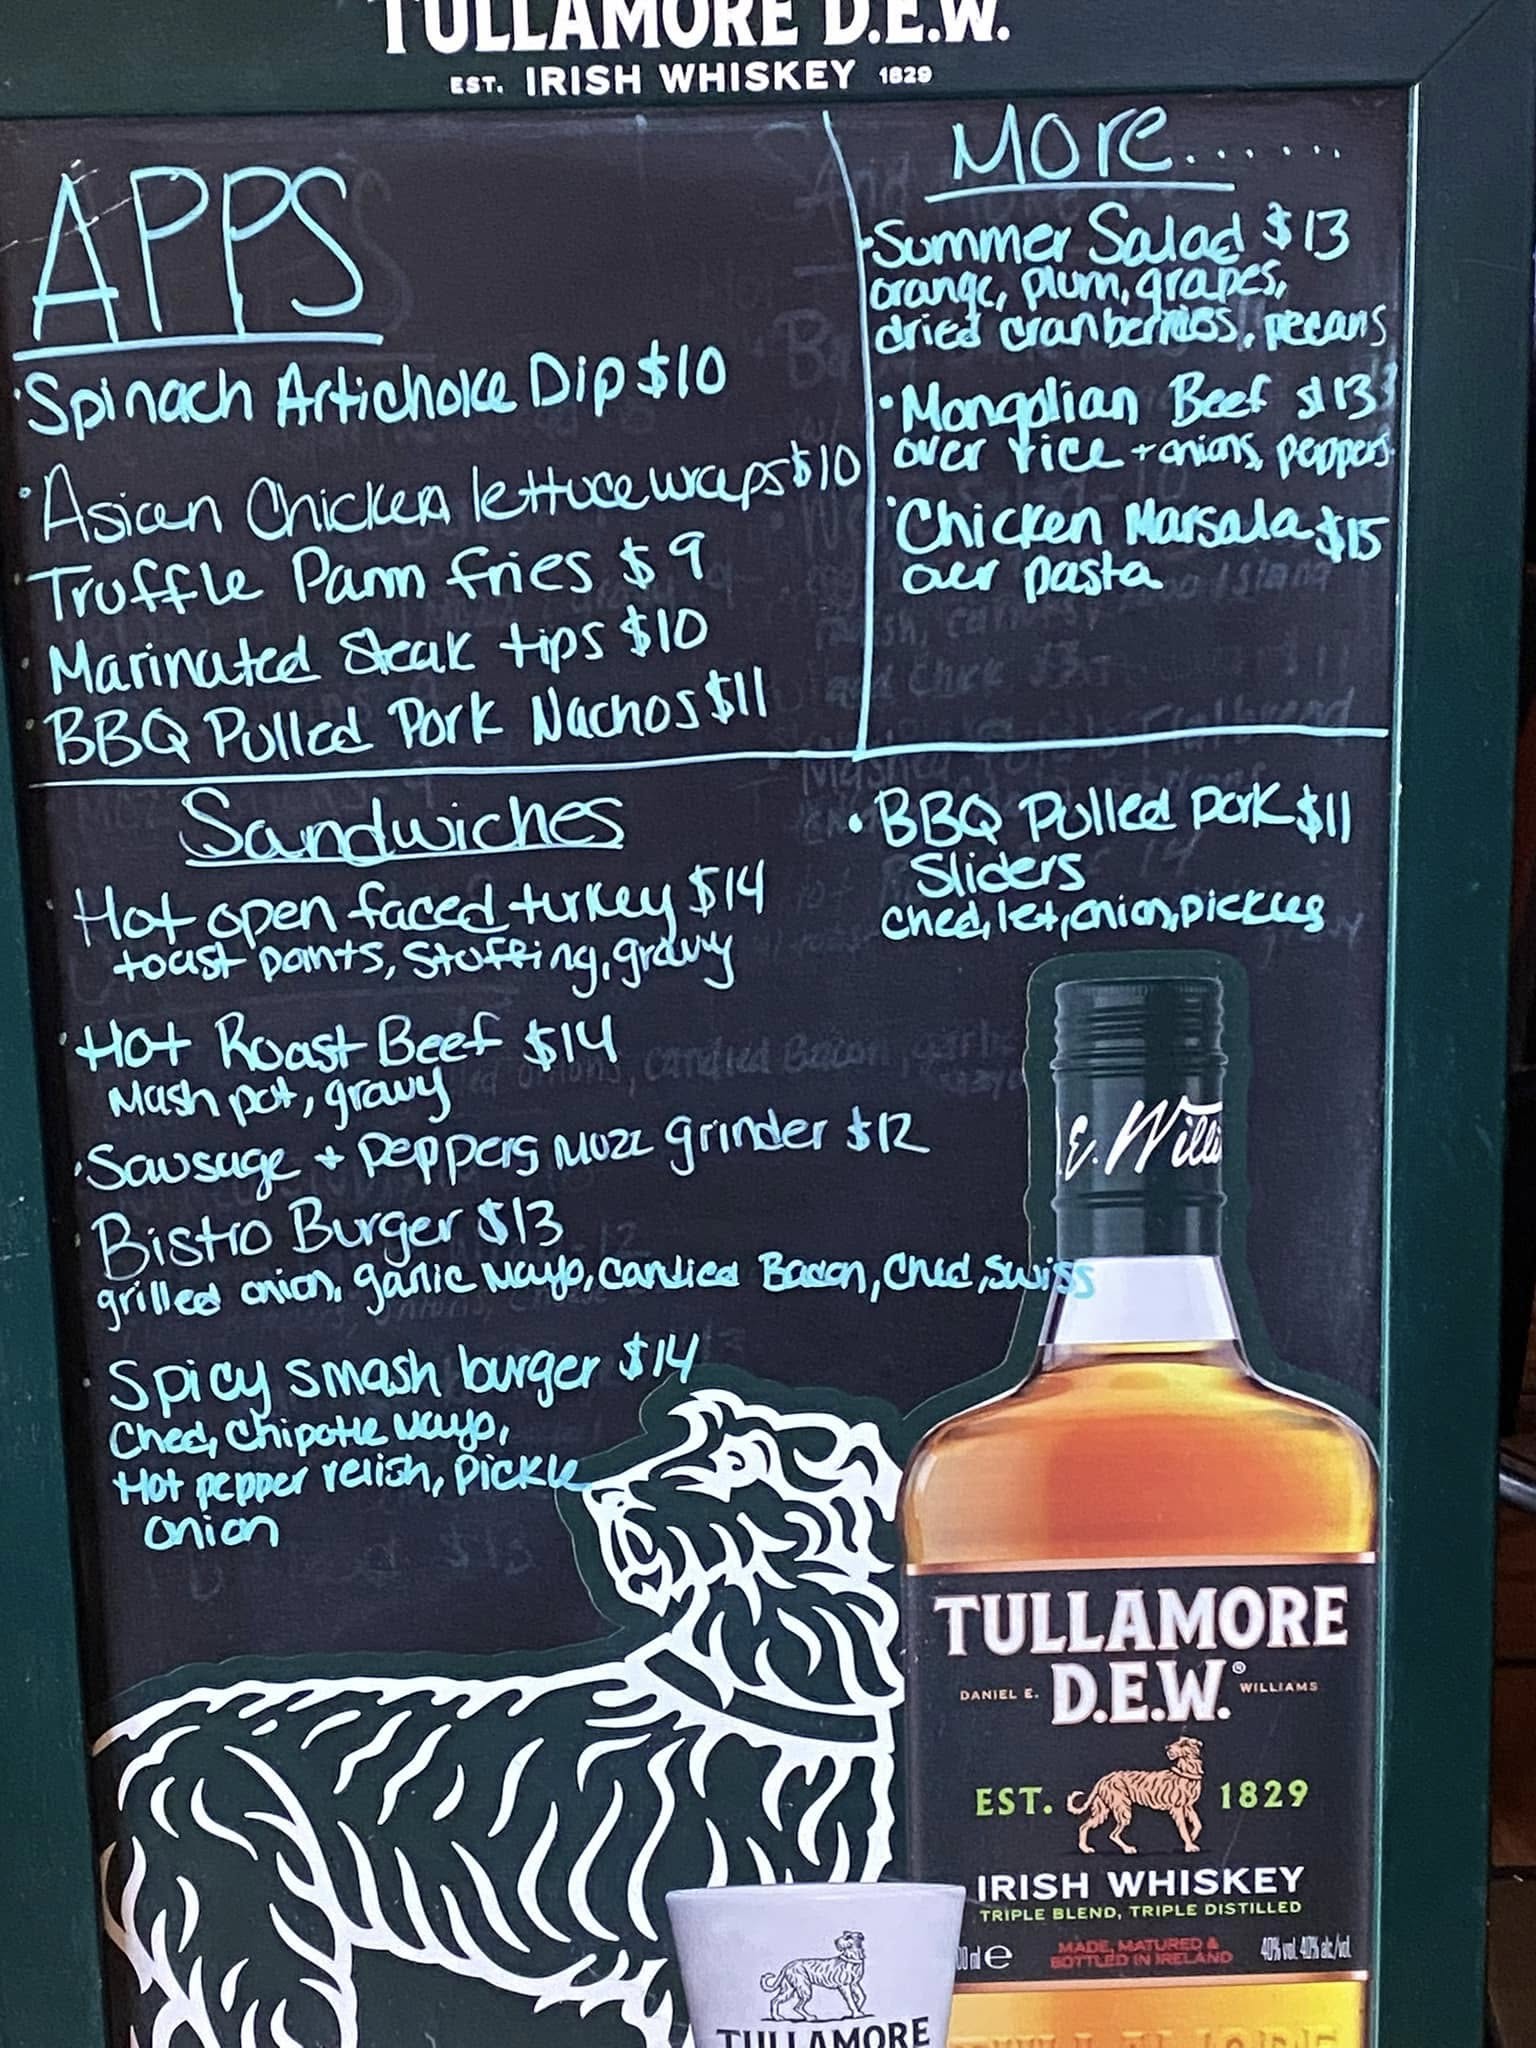 TULLAMORE D.E.W.
EST. IRISH WHISKEY 1829
APPS
·Spinach Artichoke Dip $10
·Asian Chicken lettuce wraps $10
·Truffle Parm fries $9
·Marinated Steak tips $10
·BBQ Pulled Pork Nachos $11
More.......
·Summer Salad $13
orange, plum, grapes,
dried cranberries, pecans
·Mongolian Beef $13
over rice + onions, peppers
·Chicken Marsala $15
over pasta
Sandwiches
Hot open faced turkey $14
toast points, stuffing, gravy
·Hot Roast Beef $14
Mash pot, gravy
·Sausage + Peppers Mozz grinder $12
·Bistro Burger $13
grilled onion, garlic Mayo, Candied Bacon, Ched, Swiss
·Spicy smash burger $14
Ched, Chipotle Mayo,
Hot pepper relish, Pickle
onion
·BBQ Pulled Pork $11
Sliders
Ched, let, onion, pickles
E. Willi
TULLAMORE
D.E.W.®
DANIEL E. WILLIAMS
EST. 1829
IRISH WHISKEY
TRIPLE BLEND, TRIPLE DISTILLED
MADE, MATURED &
BOTTLED IN IRELAND
40% vol. 40% alc/vol.
TULLAMORE